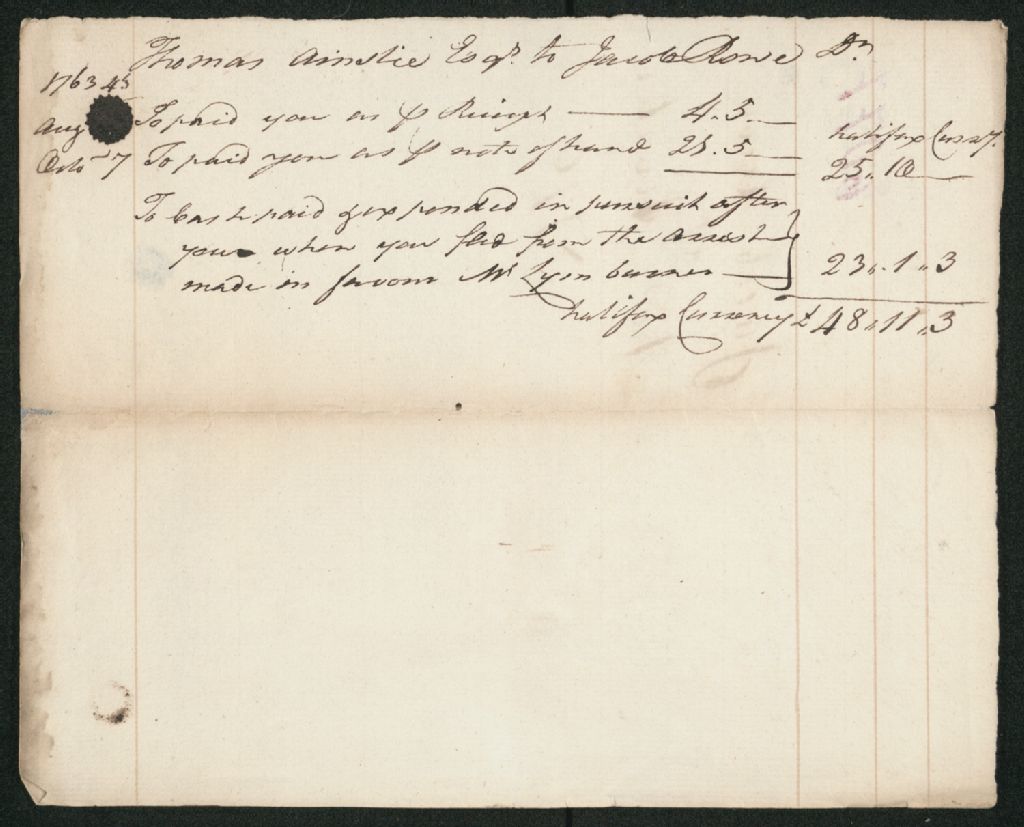 Thomas Ainslie Esqr. to Jacob Rowe Dr
1763
Augt To paid you as ⅌ Receipt — 4.5 — halifax Curr'y.
Octor 7 To paid you as ⅌ note of hand 21.5 — 25,,10 —
To Cash paid & expended in pursuit after
you when you fled from the arrest
made in favour Mr Lymburner — 23,,1,,3
halifax Currency £ 48,,11,,3